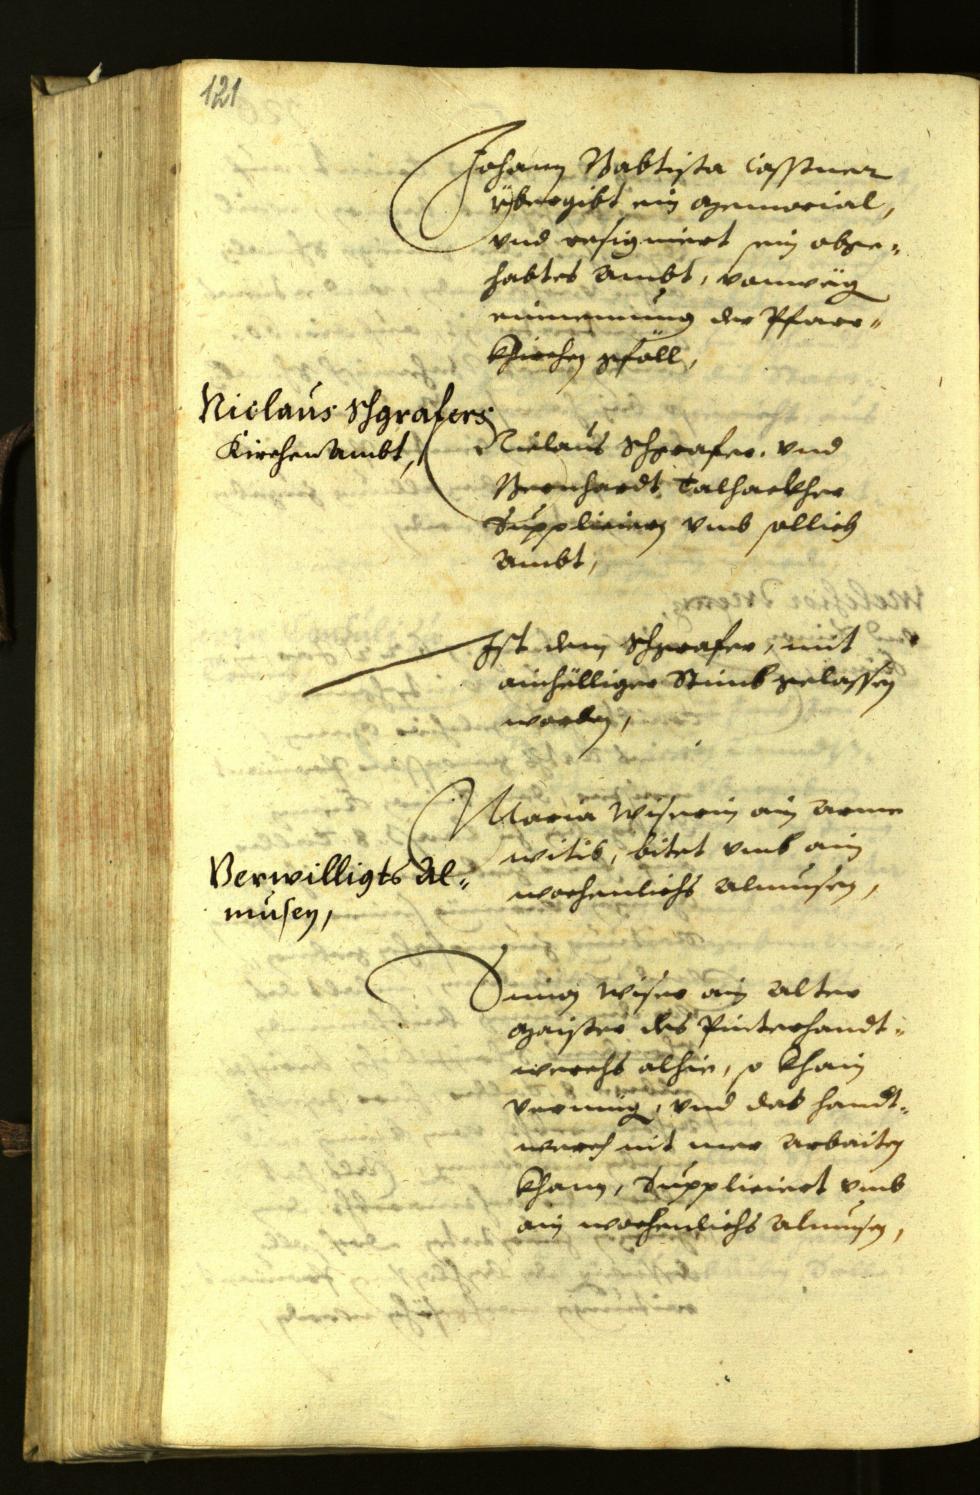 121
Johann Babtista Casstner
ybergibt ein memorial,
vnd resigniert sein abge„
habtes Ambt, von weg
einnemung der Pfarr„
Khirchen gfäll,
Niclaus Schgrafers
Kirchen Ambt,
Niclaus Schgrafer, vnd
Bernhardt Talhackher
Supplicieren vmb sollich
Ambt,
Ist dem Schgrafer, mit
ainhölliger Stimb gelassen
worden,
Maria Wiserin ain Arme
witib, bitet vmb ain
wochenlichs Almusen,
Verwilligts Al„
musen,
Simon Wiser ain Alter
maister des Pinterhandt„
werchs alhie, so khain
vermüg, vnd das handt„
werch nit mer Arbaiten
khann, Suppliciert vmb
ain wochenlichs Almusen,